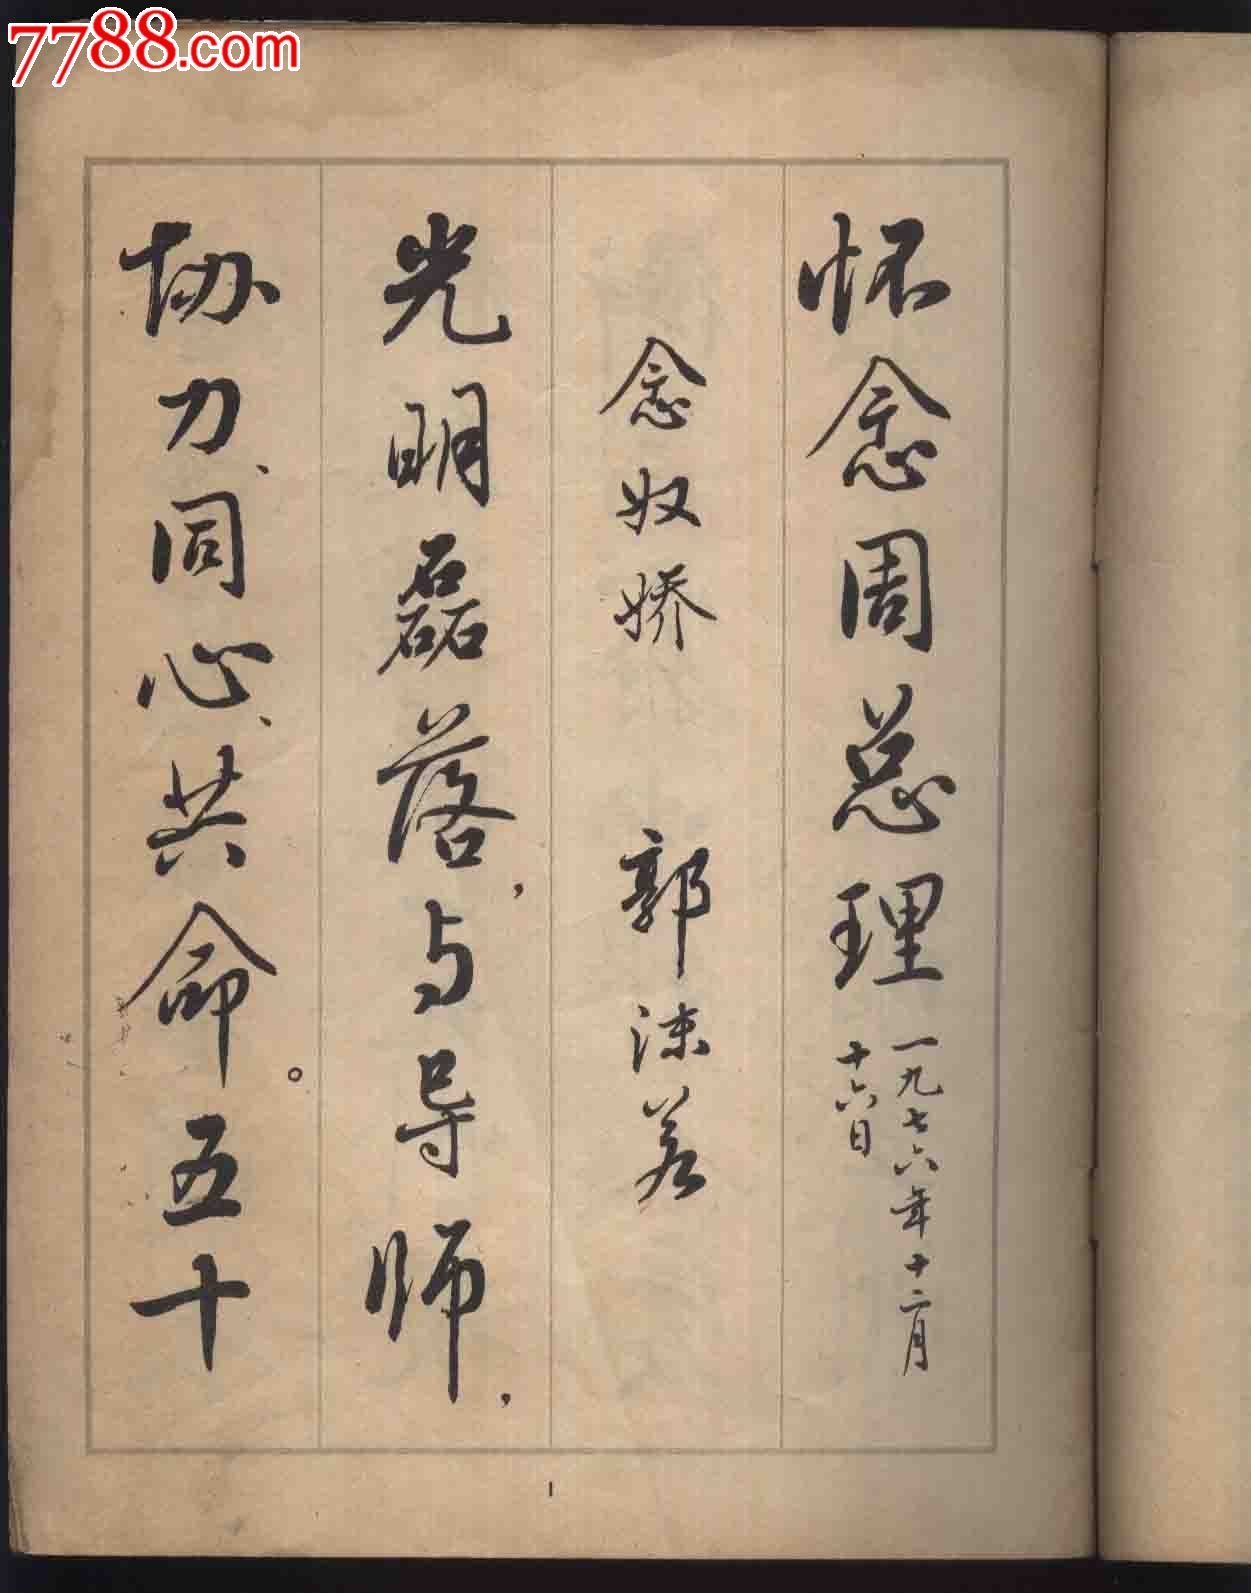 7788.com
怀念周总理
一九七六年十二月
十六日
念奴娇 郭沫若
光明磊落,与导师,
协力、同心、共命。五十
1